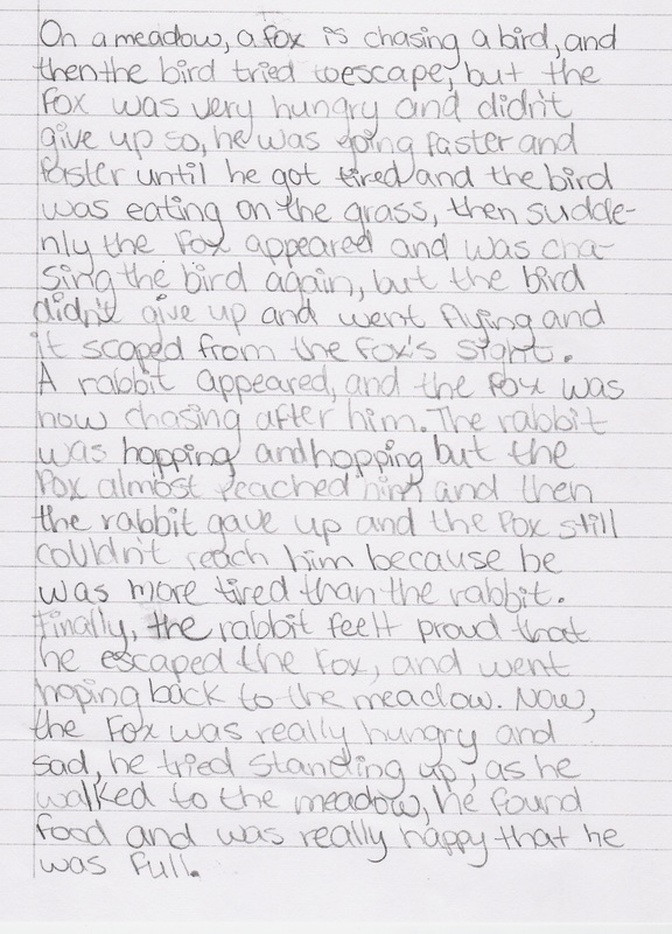 On a meadow, a fox is chasing a bird, and
then the bird tried to escape, but the
fox was very hungry and didn't
give up so, he was going faster and
faster until he got tired and the bird
was eating on the grass, then sudde-
nly the fox appeared and was cha-
sing the bird again, but the bird
didn't give up and went flying and
it scaped from the fox's sight.
A rabbit appeared, and the fox was
now chasing after him. The rabbit
was hopping and hopping but the
fox almost reached him and then
the rabbit gave up and the fox still
couldn't reach him because he
was more tired than the rabbit.
Finally, the rabbit feelt proud that
he escaped the fox, and went
hoping back to the meadow. Now,
the fox was really hungry and
sad, he tried standing up, as he
walked to the meadow, he found
food and was really happy that he
was full.